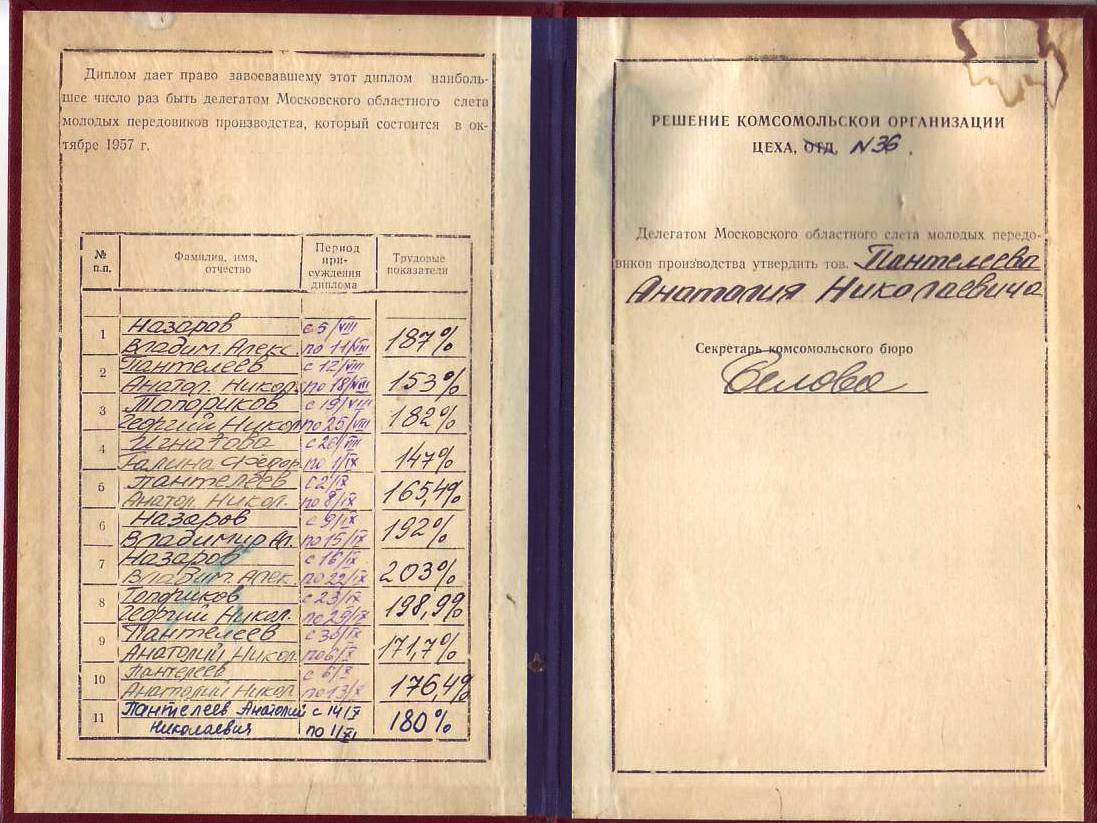 Диплом дает право завоевавшему этот диплом наиболь-
шее число раз быть делегатом Московского областного слета
молодых передовиков производства, который состоится в ок-
тябре 1957 г.
№ п.п. Фамилия, имя, отчество Период при-суждения диплома Трудовые показатели
1 Назаров с 5/VIII 187%
Владим. Алекс. по 11/VIII
2 Пантелеев с 12/VIII 153%
Анатол. Никол. по 18/VIII
3 Топориков с 19/VIII 182%
Георгий Никол по 25/VIII
4 Игнатова с 26/VIII 147%
Галина Федор. по 1/IX
5 Пантелеев с 2/IX 165,4%
Анатол Никол. по 8/IX
6 Назаров с 9/IX 192%
Владимир Ал. по 15/IX
7 Назаров с 16/IX 203%
Владим. Алек. по 22/IX
8 Топориков с 23/IX 198,9%
Георгий Никол. по 29/IX
9 Пантелеев с 30/IX 171,7%
Анатолий Никол. по 6/X
10 Пантелеев 176,4%
Анатолий Никол по 13/X
11 Пантелеев Анатолий с 14/X 180%
Николаевич по 11/XI
РЕШЕНИЕ КОМСОМОЛЬСКОЙ ОРГАНИЗАЦИИ
ЦЕХА, ОТД. N 36.
Делегатом Московского областного слета молодых передо-
виков производства утвердить тов. Пантелеева
Анатолия Николаевича
Секретарь комсомольского бюро
Белова